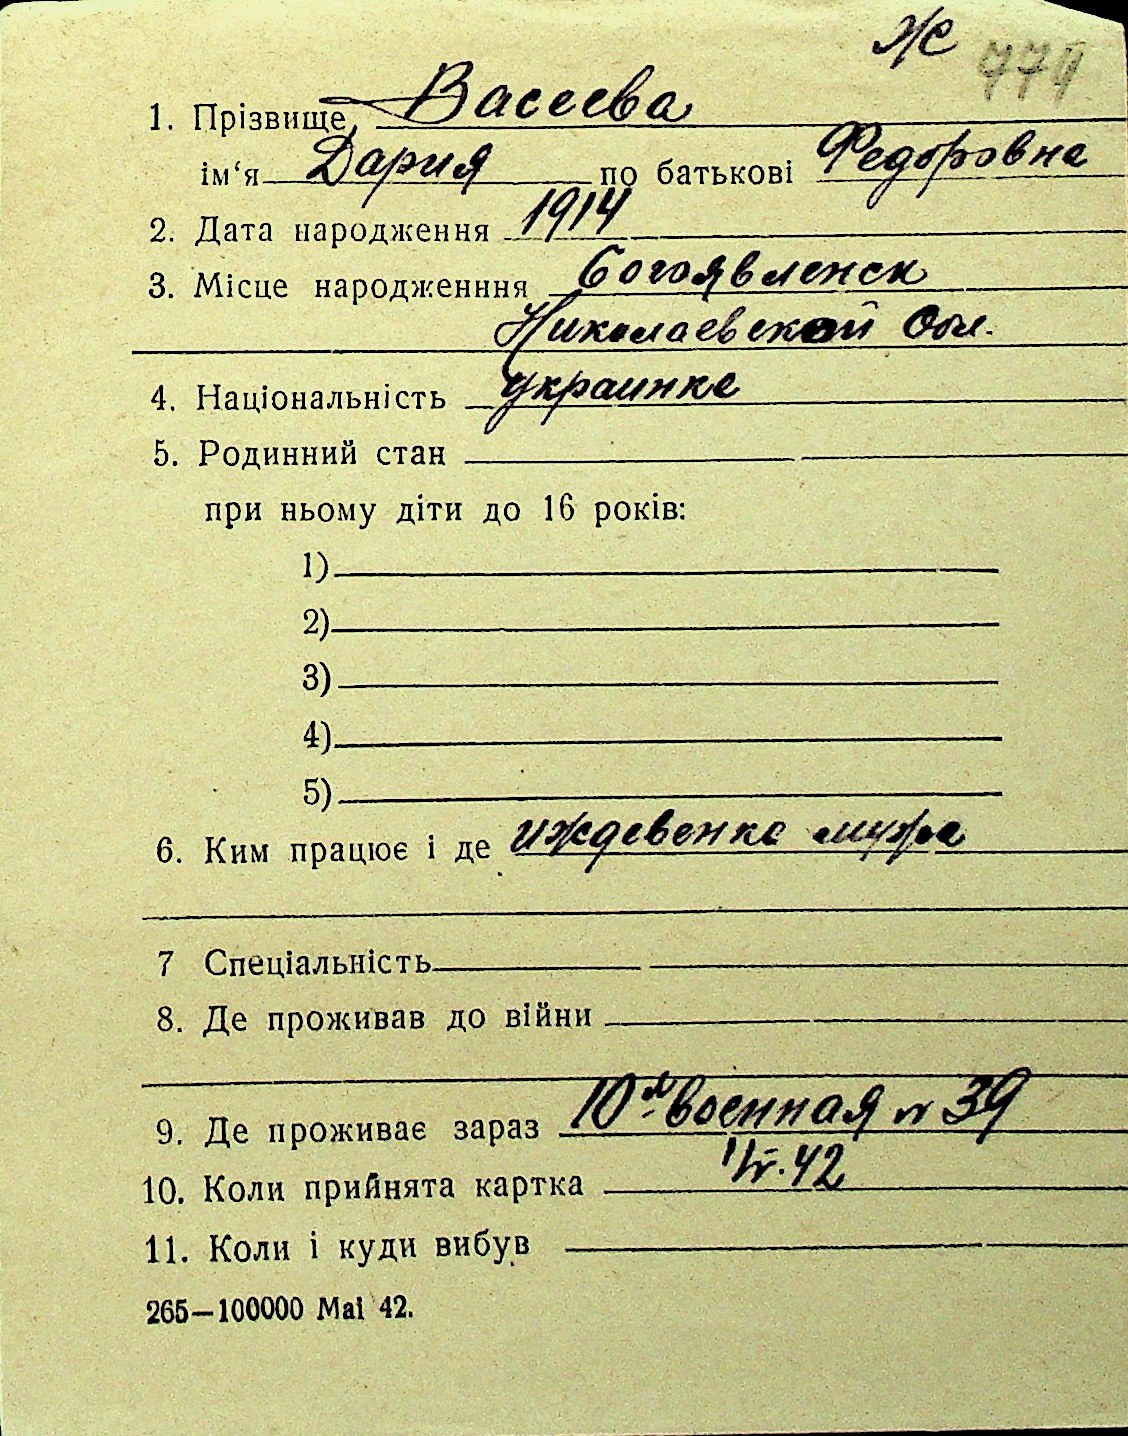 Ж 779
1. Прізвище, Васеева
ім‘я Дария по батькові Федоровна
2. Дата народження 1914
3. Місце народженння Богоявленск
Николаевской Обл.
4. Національність украинка
5. Родинний стан
при ньому діти до 16 років:
1)
2)
3)
4)
5)
6. Ким працює і де иждевенка мужа
7 Спеціальність
8. Де проживав до війни
9. Де проживає зараз 10я военная № 39
10. Коли прийнята картка 42
11. Коли і куди вибув
265—100000 Mai 42.